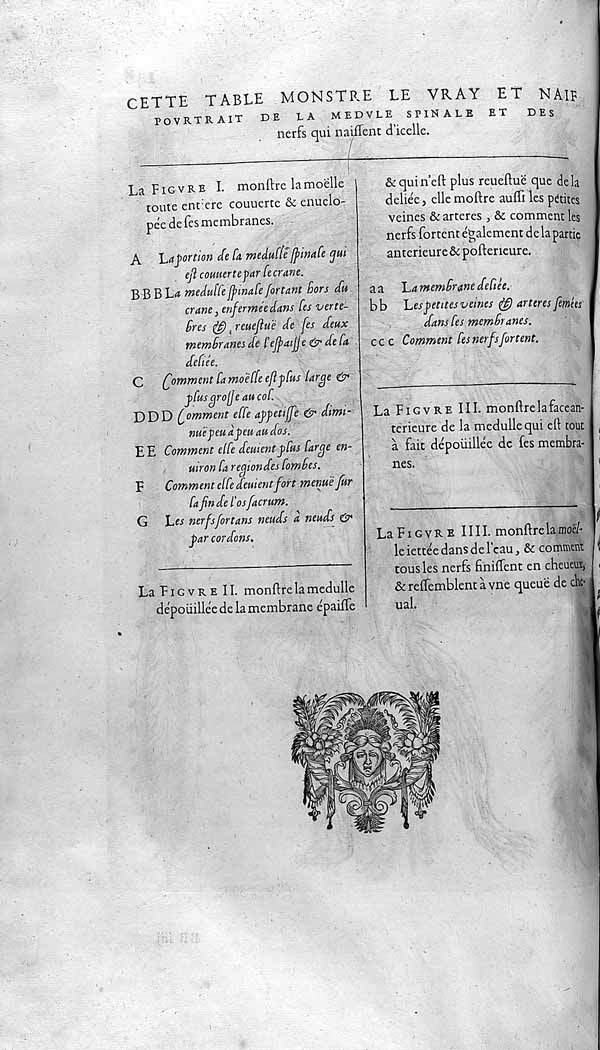 CETTE TABLE MONSTRE LE VRAY ET NAIF
POVRTRAIT DE LA MEDVLE SPINALE ET DES
nerfs qui naiſſent d'icelle.
La FIGVRE I. monſtre la moëlle
toute entiere couuerte & enuelo-
pée de ſes membranes.
A La portion de la medulle ſpinale qui
eſt couuerte par le crane.
BBB La medulle ſpinale ſortant hors du
crane, enfermée dans les verte-
bres &, reueſtuë de ſes deux
membranes de l'eſpaiſſe & de la
deliée.
C Comment la moëlle eſt plus large &
plus groſſe au col.
DDD Comment elle appetiſſe & dimi-
nuë peu à peu au dos.
EE Comment elle deuient plus large en-
uiron la region des lombes.
F Comment elle deuient fort menuë ſur
la fin de l'os ſacrum.
G Les nerfs ſortans neuds à neuds &
par cordons.
La FIGVRE II. monſtre la medulle
dépoüillée de la membrane épaiſſe
& qui n'eſt plus reueſtuë que de la
deliée, elle moſtre auſſi les petites
veines & arteres, & comment les
nerfs ſortent également de la partie
anterieure & poſterieure.
aa La membrane deliée.
bb Les petites veines & arteres ſemées
dans ſes membranes.
ccc Comment les nerfs ſortent.
La FIGVRE III. monſtre la face an-
terieure de la medulle qui eſt tout
à fait dépoüillée de ſes membra-
nes.
La FIGVRE IIII. monſtre la moël-
le iettée dans de l'eau, & comment
tous les nerfs finiſſent en cheueux,
& reſſemblent à vne queuë de che-
ual.